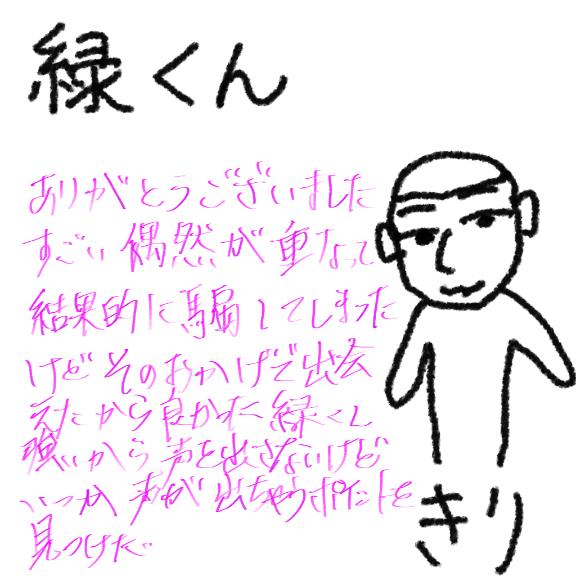 緑くん
ありがとうございました
すごい偶然が重なって
結果的に騙してしまった
けどそのおかげで出会
えたから良かった緑くん
強いから声を出さないけど
いつか声が出ちゃうポイントを
見つけだ
きり